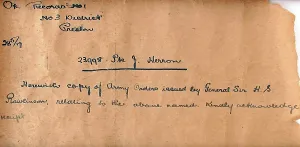 Records No 1
No 3 District
Preston
23998 Pte J. Herron
Herewith copy of Army Orders issued by General Sir H. S
Rawlinson, relating to the above named. Kindly acknowledge
receipt